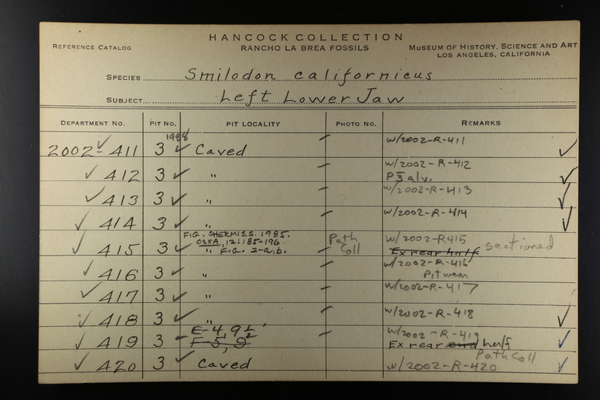 HANCOCK COLLECTION
REFERENCE CATALOG RANCHO LA BREA FOSSILS MUSEUM OF HISTORY, SCIENCE AND ART
LOS ANGELES, CALIFORNIA
SPECIES Smilodon californicus
SUBJECT Left Lower Jaw
DEPARTMENT NO. PIT NO. PIT LOCALITY PHOTO NO. REMARKS
2002-411 3 Caved w/2002-R-411
412 3 " w/2002-R-412
alv.
413 3 " w/2002-R-413
414 3 " w/2002-R-414
FIG. SHERMIS.S. 1985.
OSSA, 12:185-196
415 3 " FIG. 2-a,b. Path Coll w/2002-R415 sectioned
Ex rear half
416 3 " w/2002-R-416
Pit wear
417 3 " w/2002-R-417
418 3 " w/2002-R-418
419 3 E-4, 9½ w/2002-R-419
F-5, 9 Ex rear end half
Path Coll
420 3 Caved w/2002-R-420